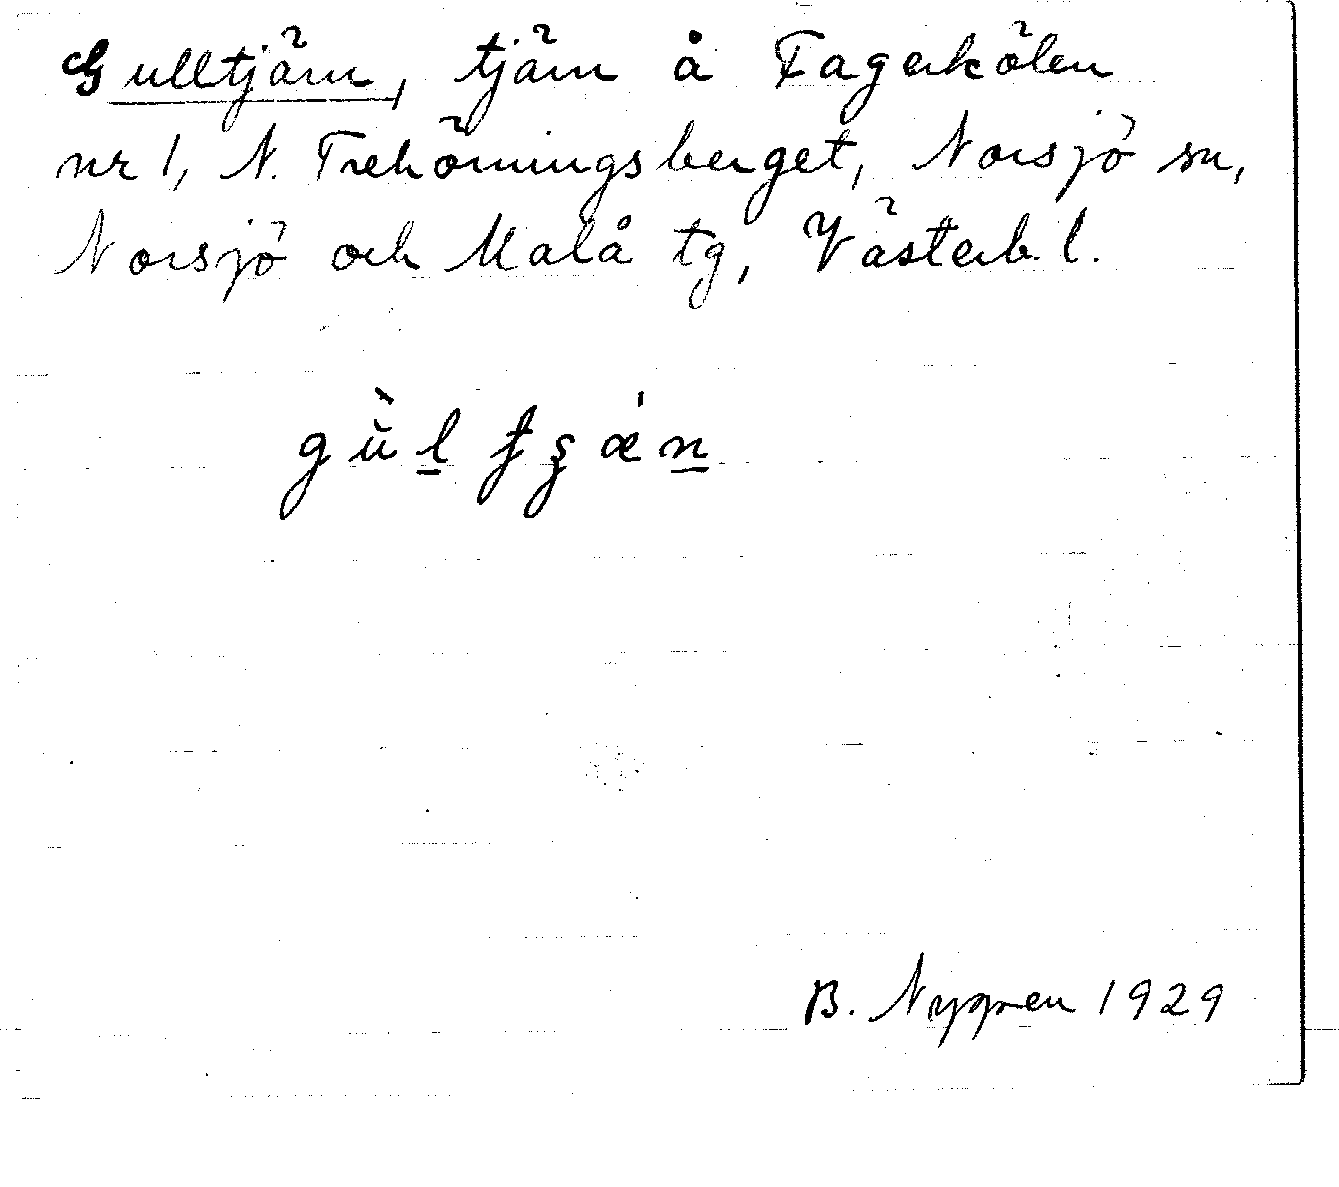 Gulltjärn, tjärn å Fagerkölen
nr 1, N. Trehörningsberget, Norsjö sn,
Norsjö och Malå tg, Västerb. l.
B. Nygren 1929